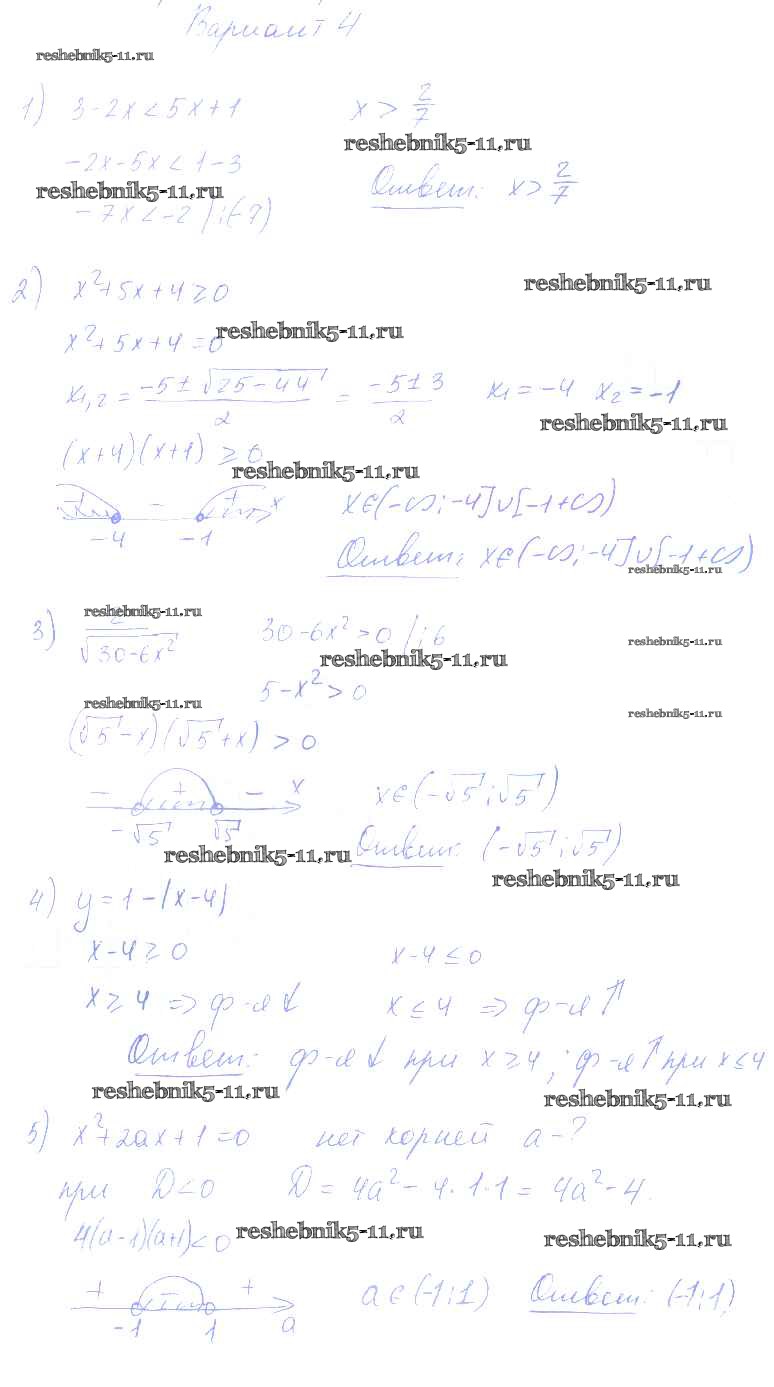 Вариант 4
reshebnik5-11.ru
1) 3-2x<5x+1 x > 2/7
reshebnik5-11.ru
-2x-5x<1-3
reshebnik5-11.ru Ответ: x> 2/7
-7x<-2 |:(-7)
2) x²+5x+4≥0 reshebnik5-11.ru
x²+5x+4=0 reshebnik5-11.ru
x₁,₂ = (-5±√(25-4·4))/2 = (-5±3)/2 x₁=-4 x₂=-1
reshebnik5-11.ru
(x+4)(x+1) ≥ 0
reshebnik5-11.ru
+ - + x x∈(-∞;-4]∪[-1+∞)
-4 -1
Ответ: x∈(-∞;-4]∪[-1+∞)
reshebnik5-11.ru
reshebnik5-11.ru
3) /√(30-6x²) 30-6x²>0 |:6
reshebnik5-11.ru
reshebnik5-11.ru
5-x²>0
reshebnik5-11.ru reshebnik5-11.ru
(√5-x)(√5+x)>0
- + - x x∈(-√5;√5)
-√5 √5
reshebnik5-11.ru Ответ: (-√5;√5)
reshebnik5-11.ru
4) y=1-|x-4|
x-4≥0 x-4≤0
x≥4 ⇒ ф-я↓ x≤4 ⇒ ф-я↑
Ответ: ф-я↓ при x≥4; ф-я↑ при x≤4
reshebnik5-11.ru reshebnik5-11.ru
5) x²+2ax+1=0 нет корней a-?
при D<0 D=4a²-4·1·1=4a²-4.
4(a-1)(a+1)<0 reshebnik5-11.ru reshebnik5-11.ru
+ - + a∈(-1;1) Ответ: (-1;1)
-1 1 a